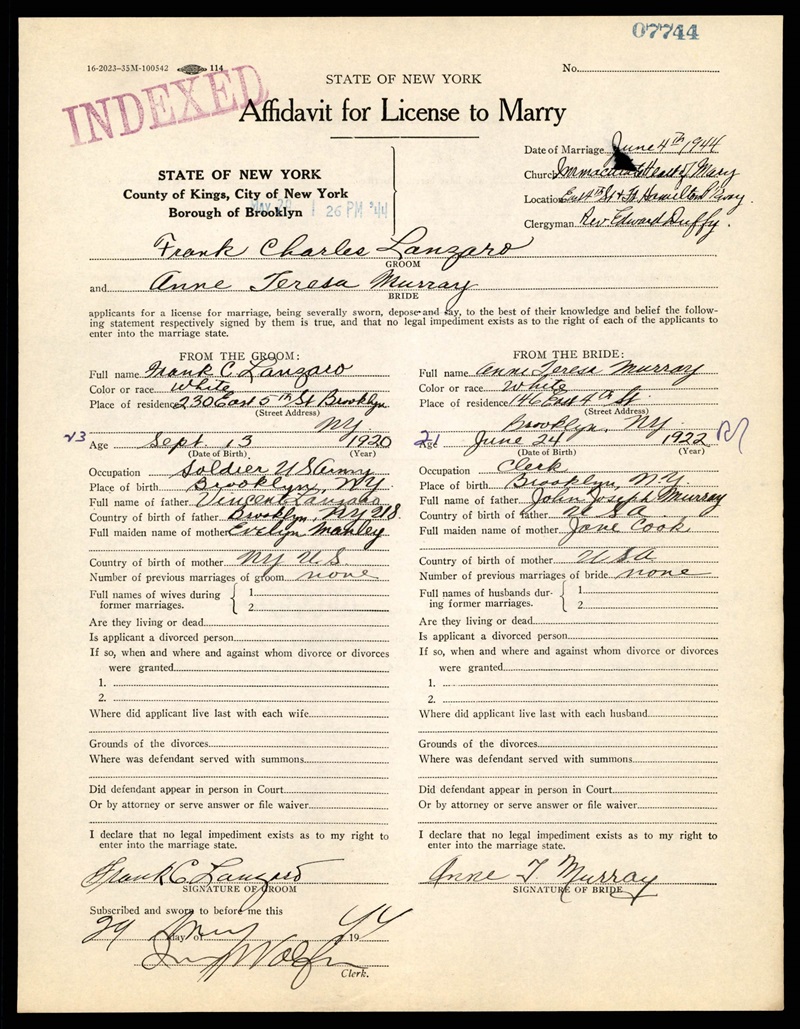 07744
16-2023-35M-100542 114
No.
INDEXED
STATE OF NEW YORK
Affidavit for License to Marry
Date of Marriage June 4th 1944
Church Immaculate Heart of Mary
Location East 4th St & Ft. Hamilton Pkway.
Clergyman Rev Edward Duffy.
STATE OF NEW YORK
County of Kings, City of New York
Borough of Brooklyn
May 29 1 26 PM '44
Frank Charles Lanzaro
GROOM
and Anne Teresa Murray
BRIDE
applicants for a license for marriage, being severally sworn, depose and say, to the best of their knowledge and belief the follow-
ing statement respectively signed by them is true, and that no legal impediment exists as to the right of each of the applicants to
enter into the marriage state.
FROM THE GROOM:
Full name Frank C. Lanzaro
Color or race White
Place of residence 230 East 5th St Brooklyn
(Street Address)
NY
23 Age Sept. 13 1920
(Date of Birth) (Year)
Occupation Soldier US Army
Place of birth Brooklyn, NY.
Full name of father Vincent Lanzaro
Country of birth of father Brooklyn, NY US.
Full maiden name of mother Evelyn Manley
Country of birth of mother NY U.S.
Number of previous marriages of groom none
Full names of wives during
former marriages.
1
2
Are they living or dead
Is applicant a divorced person
If so, when and where and against whom divorce or divorces
were granted
1.
2.
Where did applicant live last with each wife
Grounds of the divorces
Where was defendant served with summons
Did defendant appear in person in Court
Or by attorney or serve answer or file waiver
I declare that no legal impediment exists as to my right to
enter into the marriage state.
Frank C Lanzaro
SIGNATURE OF GROOM
Subscribed and sworn to before me this
29 day of May 1944
Clerk.
FROM THE BRIDE:
Full name Anne Teresa Murray
Color or race White
Place of residence 146 East 4th St.
(Street Address)
Brooklyn, NY
21 Age June 24 1922
(Date of Birth) (Year)
Occupation Clerk
Place of birth Brooklyn, N.Y.
Full name of father John Joseph Murray
Country of birth of father U.S.A.
Full maiden name of mother Jane Cook
Country of birth of mother USA
Number of previous marriages of bride none
Full names of husbands dur-
ing former marriages.
1
2
Are they living or dead
Is applicant a divorced person
If so, when and where and against whom divorce or divorces
were granted
1.
2.
Where did applicant live last with each husband
Grounds of the divorces
Where was defendant served with summons
Did defendant appear in person in Court
Or by attorney or serve answer or file waiver
I declare that no legal impediment exists as to my right to
enter into the marriage state.
Anne T. Murray
SIGNATURE OF BRIDE